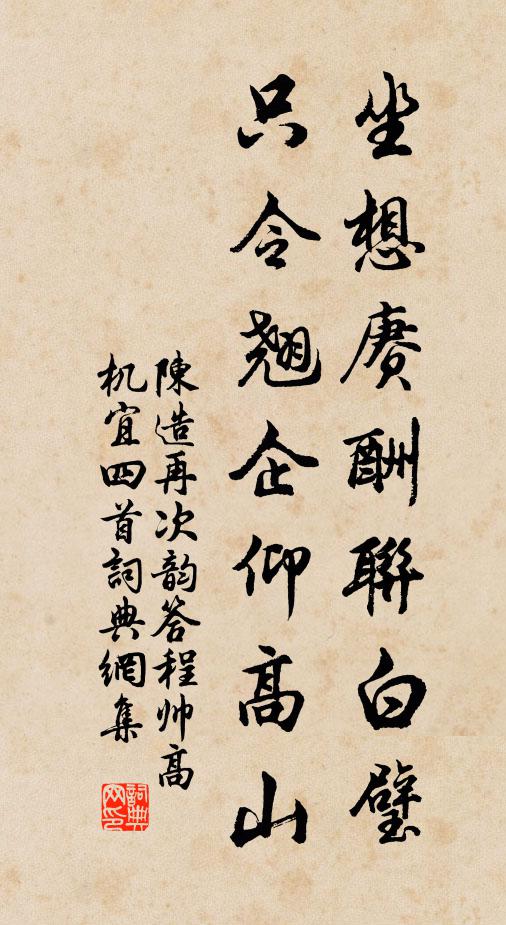 坐想赓酬聯白璧
只令翘企仰高山
陳造再次韵答程帅高
机宜四首詞典網集
詞典网印